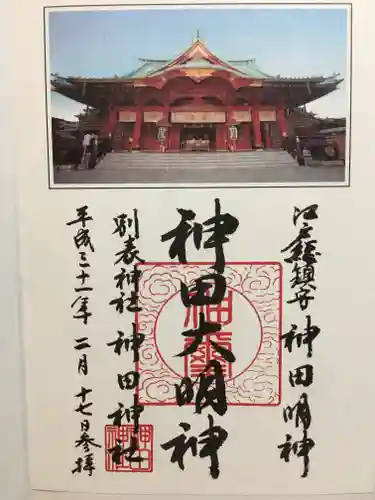 江戸總鎮守 神田明神
神田大明神
別表神社 神田神社
平成三十一年 二月 十七日参拝